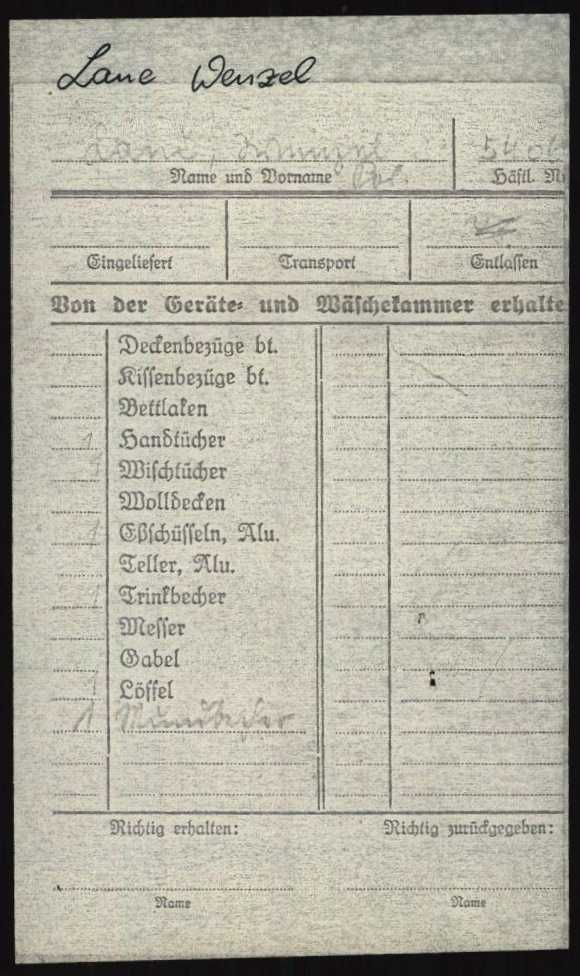 Lane Wenzel
Name und Vorname
Häftl. N
Eingeliefert Transport Entlassen
Von der Geräte- und Wäschekammer erhalte
Deckenbezüge bt.
Kissenbezüge bt.
Bettlaken
1 Handtücher
1 Wischtücher
Wolldecken
1 Eßschüsseln, Alu.
Teller, Alu.
1 Trinkbecher
Messer
Gabel
1 Löffel
1 Mundbecher
Richtig erhalten: Richtig zurückgegeben:
Name Name